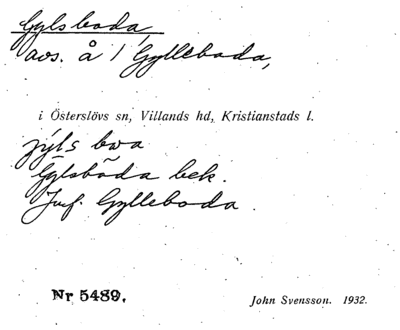 Gylsboda,
avs. å / Gylleboda,
i Österslövs sn, Villands hd, Kristianstads l.
jýls bωa
Gylsbōda bek.
Jmf. Gylleboda.
Nr 5489.
John Svensson. 1932.